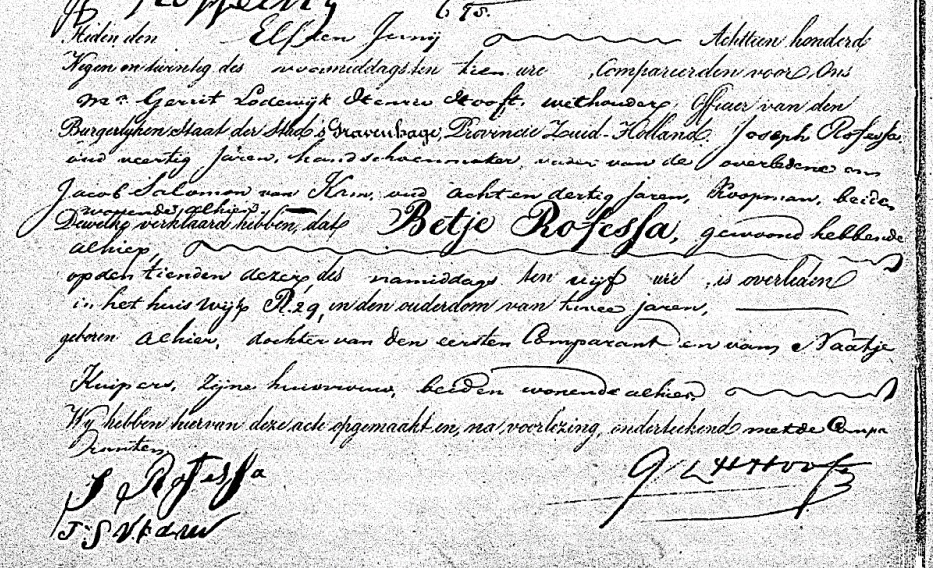 695.
Heden den Elfden Junij Achttien honderd
Negen en twintig des voormiddags ten tien ure, Compareerden voor Ons
Mr. Gerrit Lodewijk Hooft, wethouder, Officier van den
Burgerlyken Staat der Stad 's Gravenhage, Provincie Zuid-Holland, Joseph Rofessa
oud veertig Jaren, handschoenmaker vader van de overledene en
Jacob Salomon van oud acht en dertig jaren, Koopman, beiden
wonende alhier
Dewelke verklaard hebben, dat Betje Rofessa, gewoond hebbende
alhier,
op den tienden dezer des namiddags ten vijf ure, is overleden
in het huis Wijk R.29, in den ouderdom van twee jaren,
geboren alhier, dochter van den eersten Comparant en van Naatje
Kuipers, zijne huisvrouw, beiden wonende alhier
Wij hebben hiervan deze acte opgemaakt en, na voorlezing, onderteekend met de Compa
ranten
J Rofessa
G L H Hooft